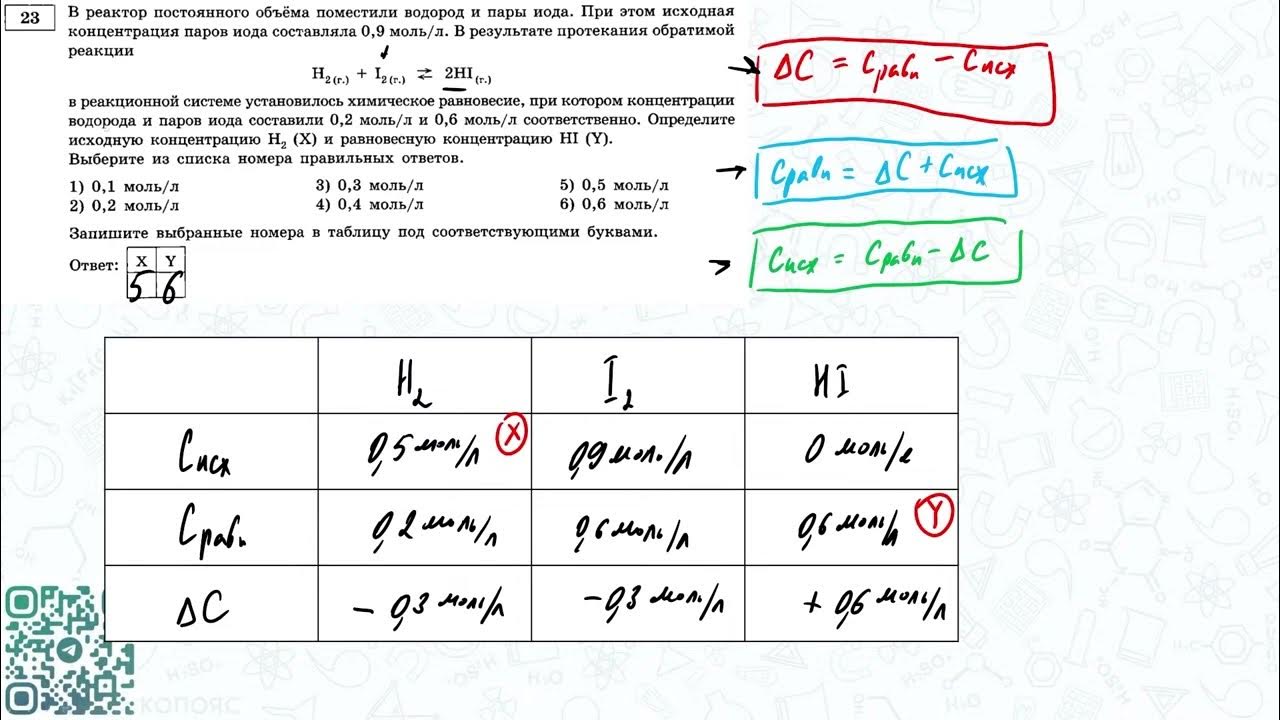 23
В реактор постоянного объёма поместили водород и пары иода. При этом исходная
концентрация паров иода составляла 0,9 моль/л. В результате протекания обратимой
реакции
H2(г.) + I2(г.) ⇄ 2HI(г.)
в реакционной системе установилось химическое равновесие, при котором концентрации
водорода и паров иода составили 0,2 моль/л и 0,6 моль/л соответственно. Определите
исходную концентрацию H2 (X) и равновесную концентрацию HI (Y).
Выберите из списка номера правильных ответов.
1) 0,1 моль/л 3) 0,3 моль/л 5) 0,5 моль/л
2) 0,2 моль/л 4) 0,4 моль/л 6) 0,6 моль/л
Запишите выбранные номера в таблицу под соответствующими буквами.
Ответ: X Y
5 6
ΔC = Cравн − Cисх
Cравн = ΔC + Cисх
Cисх = Cравн − ΔC
H2 I2 HI
Cисх 0,5 моль/л X 0,9 моль/л 0 моль/л
Cравн 0,2 моль/л 0,6 моль/л 0,6 моль/л Y
ΔC − 0,3 моль/л − 0,3 моль/л + 0,6 моль/л
КОПОЯС